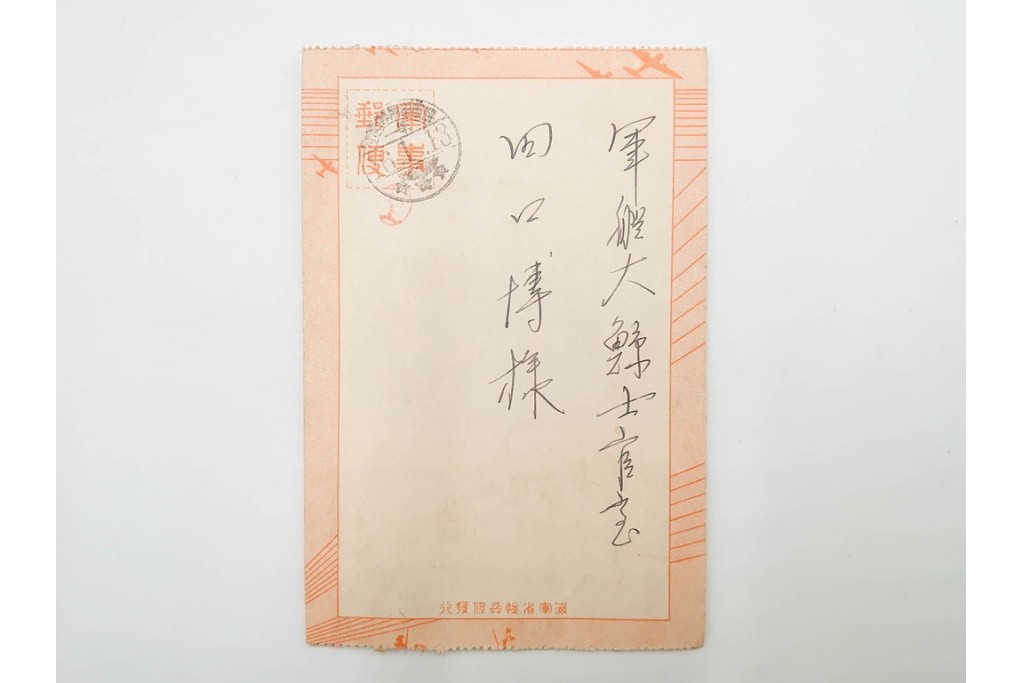 軍事
郵便
軍艦大鯨士官室
田口博様
海軍省恤兵係發行